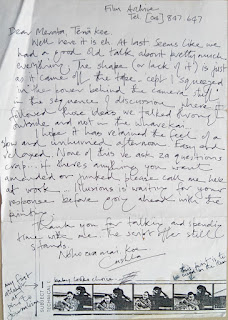 Film Archive
Tel. (04) 847.647
Dear Merata, Tēnā koe.
Well here it is eh. At last. Seems like we
had a good old talk about pretty much
everything. The shape (or lack of it) is just
as it came off the tape, cept I squeezed
in the power behind the camera stuff
in the sequence of discussion where it
followed those ideas we talked through
outside, and not in the wharekai.
I hope it has retained the feel of a
and unhurried afternoon. Easy and
relaxed. None of this we ask 20 questions
crap. If there's anything you want
amended or junked please call me here
at work... Illusions is waiting for your
response before going ahead with the
printing.
Thank you for talking and spending
time with me. The script offer still
stands.
Noho ora mai.
my first